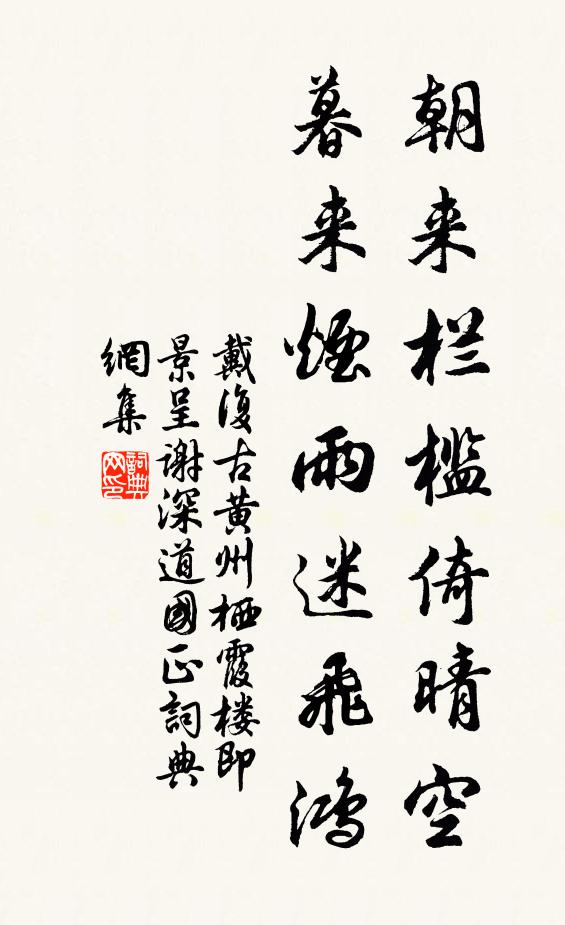 朝来栏槛倚晴空
暮来烟雨迷飞鸿
戴復古黄州栖霞楼即
景呈谢深道國正詞典
網集
詞典
网印